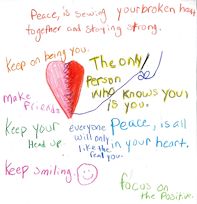 Peace, is sewing your broken heart
together and staying strong.
Keep on being you.
The only
Person
who knows you,
is you.
Make friends
Keep your
Head up.
everyone
will only
like the
real you.
Peace, is all
in your heart.
Keep smiling.
focus on
the Positive.